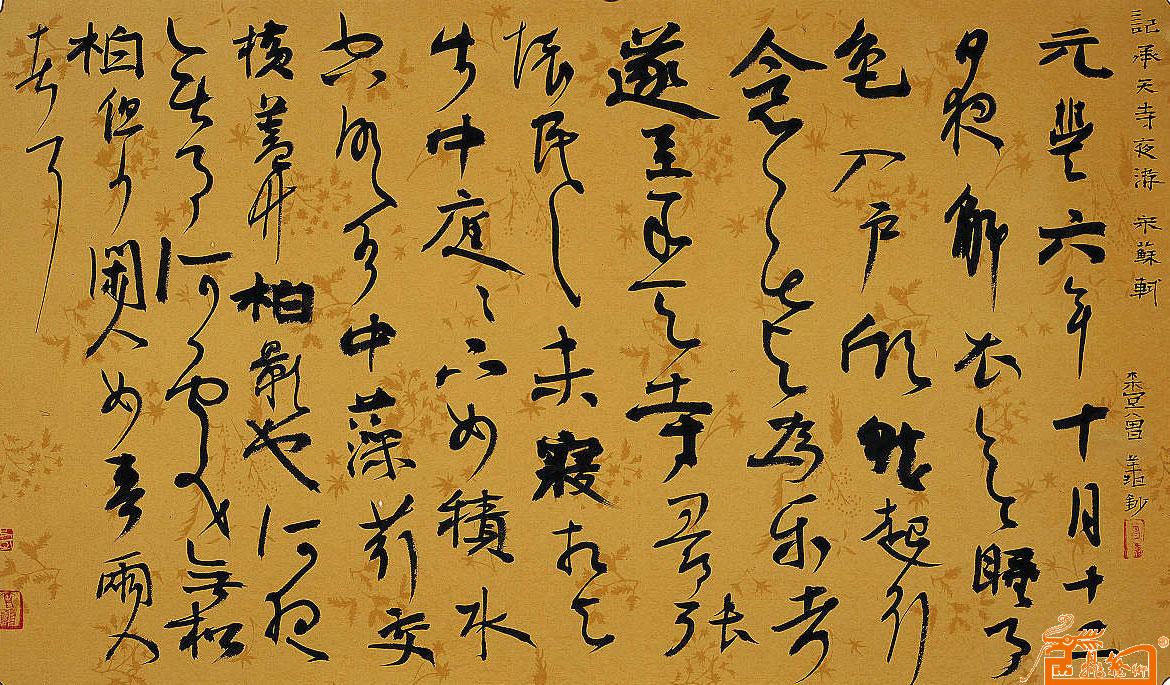 記承天寺夜游 宋蘇軾
元豐六年十月十二
日夜解衣欲睡月
色入户欣然起行
念无与為乐者
遂至承天寺尋張
懷民未寢相与
步中庭々下如積水
空明水中藻荇交
橫蓋竹柏影也何夜
无月何處無松
柏但少閑人如吾兩人
者耳